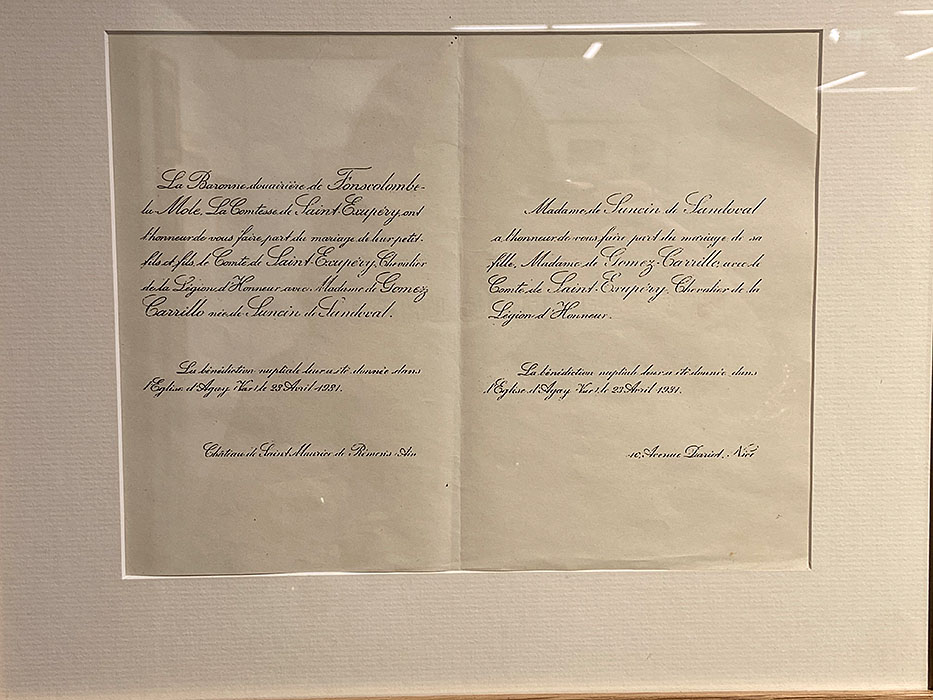 La Baronne douairière de Fonscolombe-
la-Mole, La Comtesse de Saint-Exupéry ont
l'honneur de vous faire part du mariage de leur petit-
fils et fils, le Comte de Saint-Exupéry, Chevalier
de la Légion d'Honneur avec Madame de Gomez
Carrillo née de Suncin de Sandoval.
La bénédiction nuptiale leur a été donnée dans
l'Eglise d'Agay Var, le 23 Avril 1931.
Château de Saint Maurice de Rémens Ain
Madame de Suncin de Sandoval
a l'honneur de vous faire part du mariage de sa
fille, Madame de Gomez-Carrillo, avec le
Comte de Saint-Exupéry, Chevalier de la
Légion d'Honneur.
La bénédiction nuptiale leur a été donnée dans
l'Eglise d'Agay Var, le 23 Avril 1931.
Avenue Nice